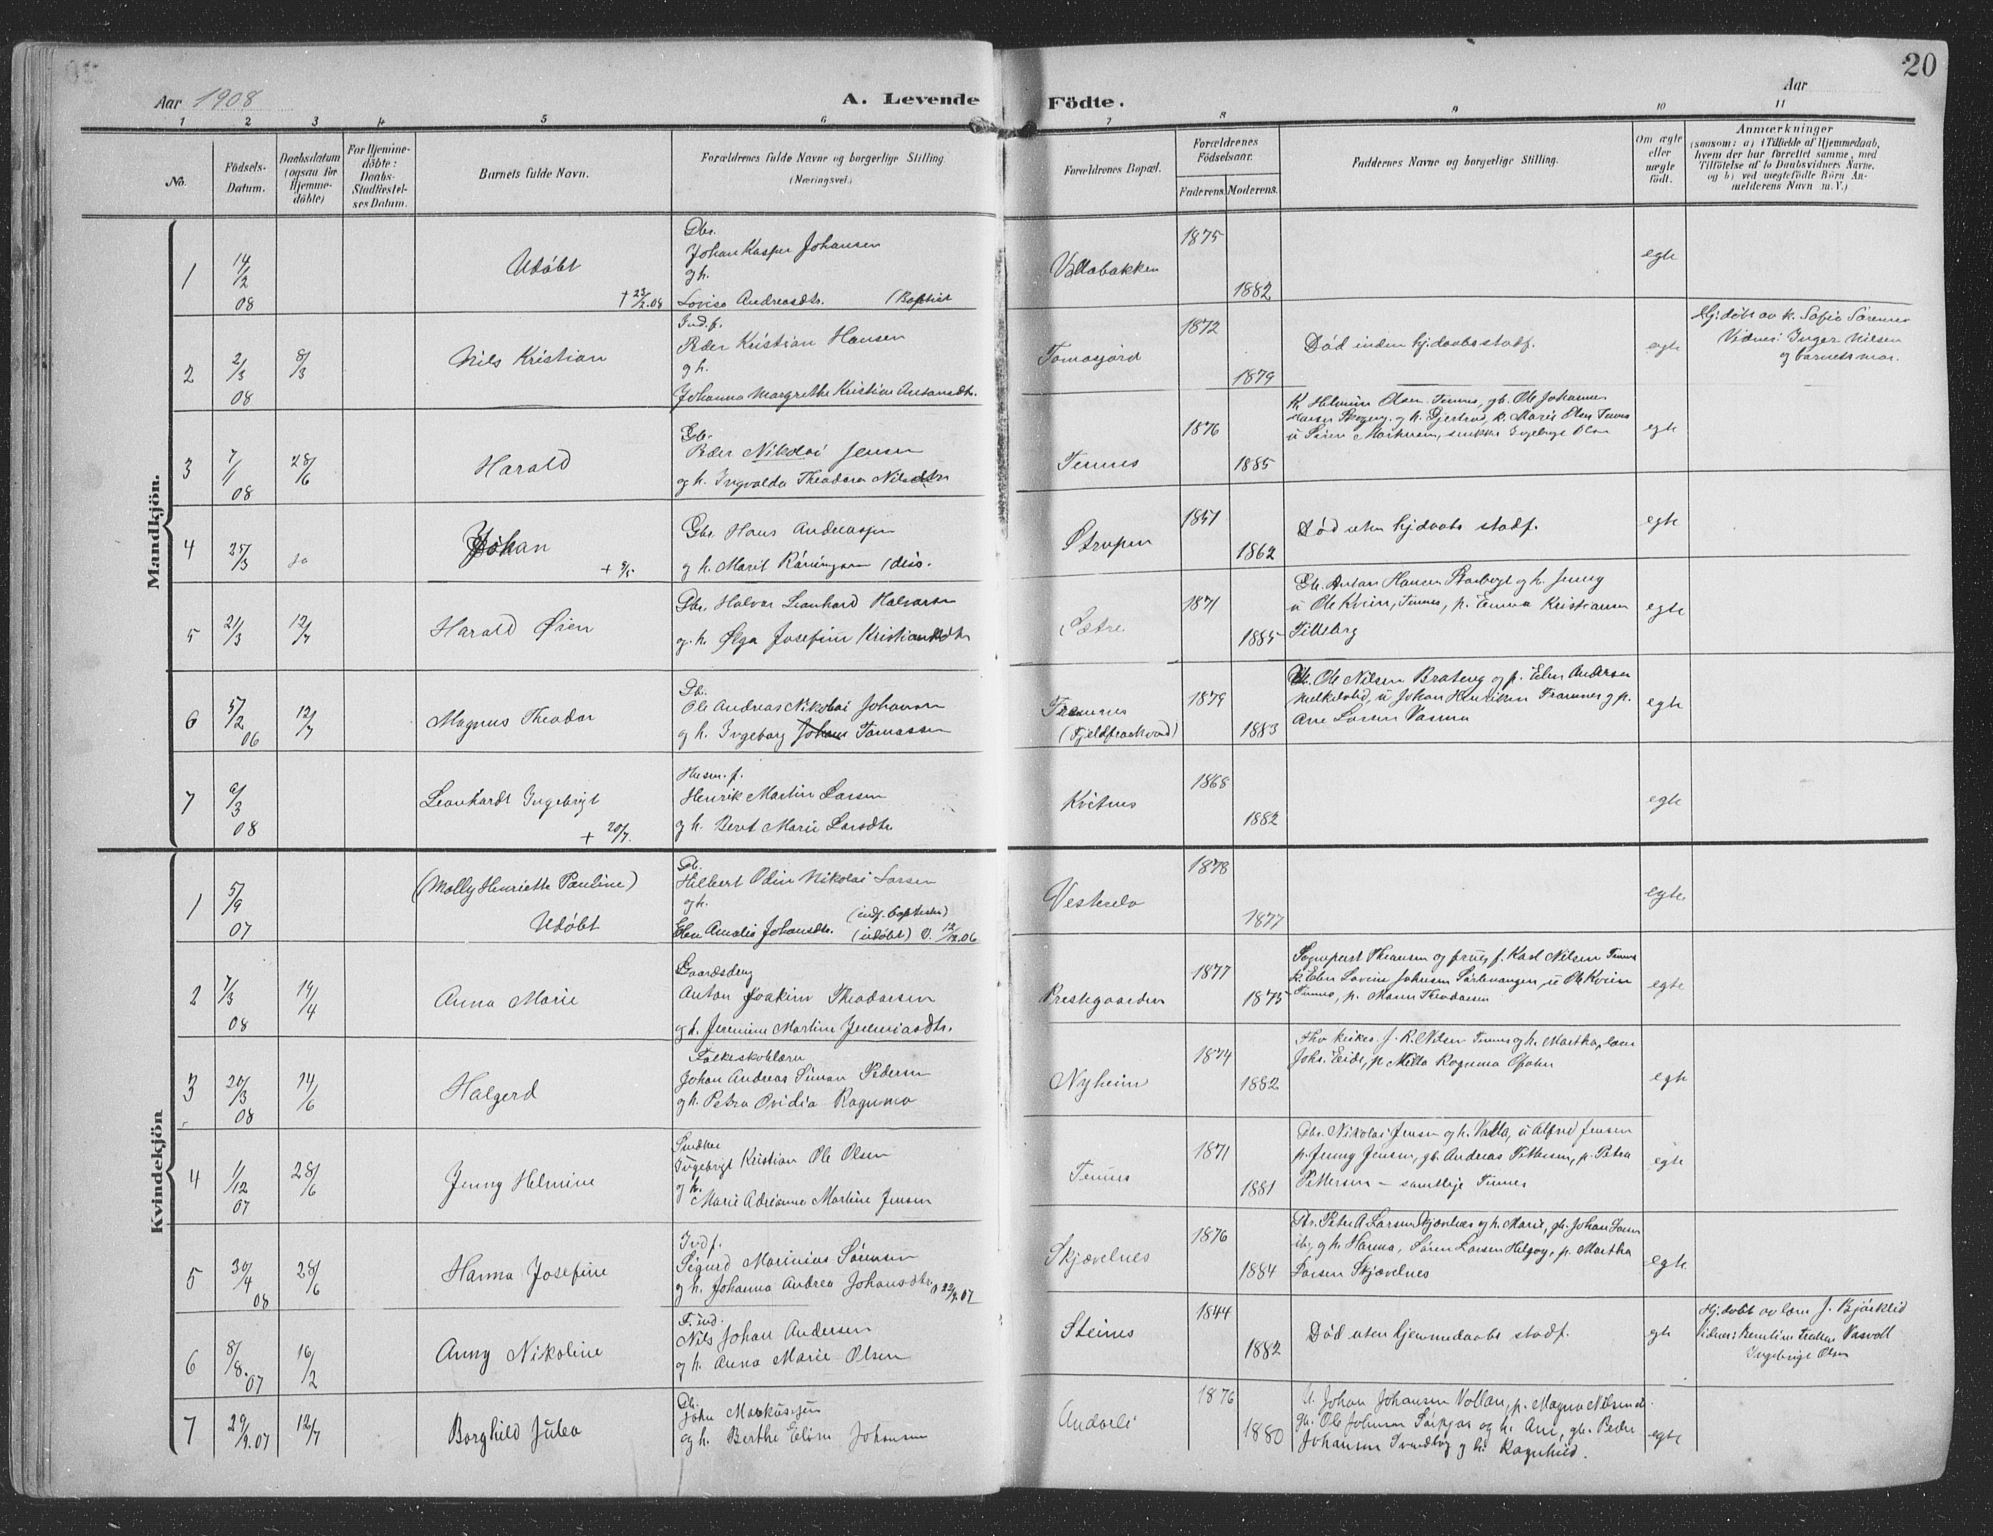 20
Aar 1908
A. Levende Födte.
Aar
1 2 3 4 5 6 7 8 9 10 11
No.
Födsels-Datum.
Daabsdatum (ogsaa for Hjemmedöbte)
For Hjemmedöbte: Daabs-Stadfæstelses Datum.
Barnets fulde Navn.
Forældrenes fulde Navne og borgerlige Stilling.
(Næringsvei.)
Forældrenes Bopæl.
Forældrenes Födselsaar.
Faderens. Moderens.
Faddernes Navne og borgerlige Stilling.
Om ægte eller uægte födt.
Anmærkninger
(saasom: a) i Tilfælde af Hjemmedaab, hvem der har forrettet samme, med Tilföielse af to Daabsvidners Navne. og b) ved uegtefödte Börn Anmelderens Navn m. V.)
Mandkjön.
1 14/2 08 Udøbt + 23/2.08
Gbr.
Johan Kasper Johansen
og h.
Lovise Andreasdtr. (Baptist
1875 1882 egte
2 2/3 08 8/3 Nils Kristian
Ind. f.
Peder Kristian Hansen
og h.
Johanna Margrethe Kristine Antonsdtr.
Tomasjord 1872 1879 Død inden hjdaabsstadf. egte
Hjdøbt av k. Sofie Sørensen
Vidner: Inger Nilsen
og barnets mor.
3 7/1 08 28/6 Harald
Gbr.
Peder Nikolai Jensen
og h. Ingvalda Theodora Nilsdtr
Tennes 1876 1885
K. Helmine Olsen Tennes, gb. Ole Johannes
og h. Gjertrud, p. Marie Olsen Tennes
u Søren Markussen, snekker Ingebrigt Olsen
egte
4 25/3 Johan
Gbr Hans Andreassen
og h. Marit (dis.
1851 1862 Død uten hjdaabs stadf. egte
5 21/3 12/7 Harald Øien
Gbr. Halvar Leonhard Halvorsen
og h. Olga Josefine Kristiansdtr
Sætre 1871 1885
Gb. Anton Hansen og h. Jenny
u Ole Kvien, Tennes, p. Emma Kristiansen
egte
6 5/2 06 12/7 Magnus Theodor
Gb.
Ole Andreas Nikolai Johansen
og h. Ingeborg Tomassen
1879 1883
Ole Nilsen Brateng og p. Elen Andersen
u Johan Henriksen Framnes og p.
Ane Larsen
egte
7 6/3 08 Leonhardt Ingebrigt + 20/7.
Husm. f.
Henrik Martin Larsen
og h. Beret Marie Larsdtr
Kvitnes 1868 1882 egte
Kvindekjön
1 5/9 07 (Molly Henriette Pauline)
Udøbt
Gb.
Hilbert Odin Nikolai Larsen
og h. (indf. baptister)
Elen Amalie Johansdtr. (udøbt) V. 12/12.06
1878 1877 egte
2 7/3 08 19/4 Anna Marie
Gaardsdreng
Anton Joakim Theodorsen
og h. Jeremine Martine Jeremiasdtr.
Prestegaarden 1877 1875
Sogneprest Theansen og frue, f. Karl Nilsen Tennes
p. Elen Lovine Johnsen u Ole Kvien
Tennes, p. Maren Theodorsen
egte
3 20/3 08 14/6 Halgerd
Folkeskolelærer
Johan Andreas Simon Pedersen
og h. Petra Ovidia Ragnna
Nyheim 1874 1882
J. R. Nilsen Tennes og h. Martha, lærer
Johs. Eide, p. Metta
egte
4 1/12 07 28/6 Jenny Helmine
Snedker
Ingebrigt Kristian Ole Olsen
og h.
Marie Adrianna Martine Jensen
Tennes 1871 1881
Gbr. Nikolai Jensen og h. Valla, u Alfred Jensen
p. Jenny Jensen, gb. Andreas Pettersen, p. Petra
Pettersen – samtlige Tennes
egte
5 30/4 08 28/6 Hanna Josefine
Ind f.
Sigurd Marinius Sørensen
og h. Johanna Andrea Johansdtr. V 22/9.07
Skjævelnes 1876 1884
Gbr. Peter A Larsen Skjævelnes og h. Marie, gb. Johan Larsen
ib. og h. Hanna, Søren Larsen Helgøy, p. Martha
Larsen Skjævelnes
egte
6 8/8. 07 16/2 Anny Nikoline
F. ind.
Nils Johan Andersen
og h. Anna Marie Olsen
Steines 1844 1882 Død uten hjemmedaabs stadf. egte
Hjdøbt av lærer J. Bjørklid
Ingebrigt Olsen
7 29/9.07 12/7 Borghild Julea
Gb.
John Markussen
og h. Berthe Johansen
Andorli 1876 1880
U. Johan Johansen Vollan, p. Magna Nilsen
gb. Ole Johnsen og h. Ane, gb. Peder
Johansen og h. Ragnhild.
egte